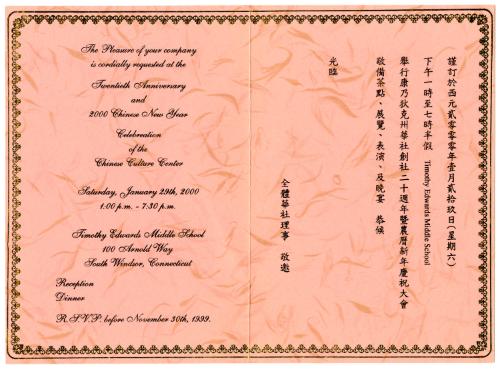 The Pleasure of your company
is cordially requested at the
Twentieth Anniversary
and
2000 Chinese New Year
Celebreation
of the
Chinese Culture Center
Saturday, January 29th, 2000
1:00 p.m. - 7:30 p.m.
Timothy Edwards Middle School
100 Arnold Way
South Windsor, Connecticut
Reception
Dinner
R.S.V.P. before November 30th, 1999.
謹訂於西元貳零零零年壹月貳拾玖日(星期六)
下午一時至七時半假 Timothy Edwards Middle School
舉行康乃狄克州華社創社二十週年暨農曆新年慶祝大會
敬備茶點、展覽、表演、及晚宴 恭候
光臨
全體華社理事 敬邀